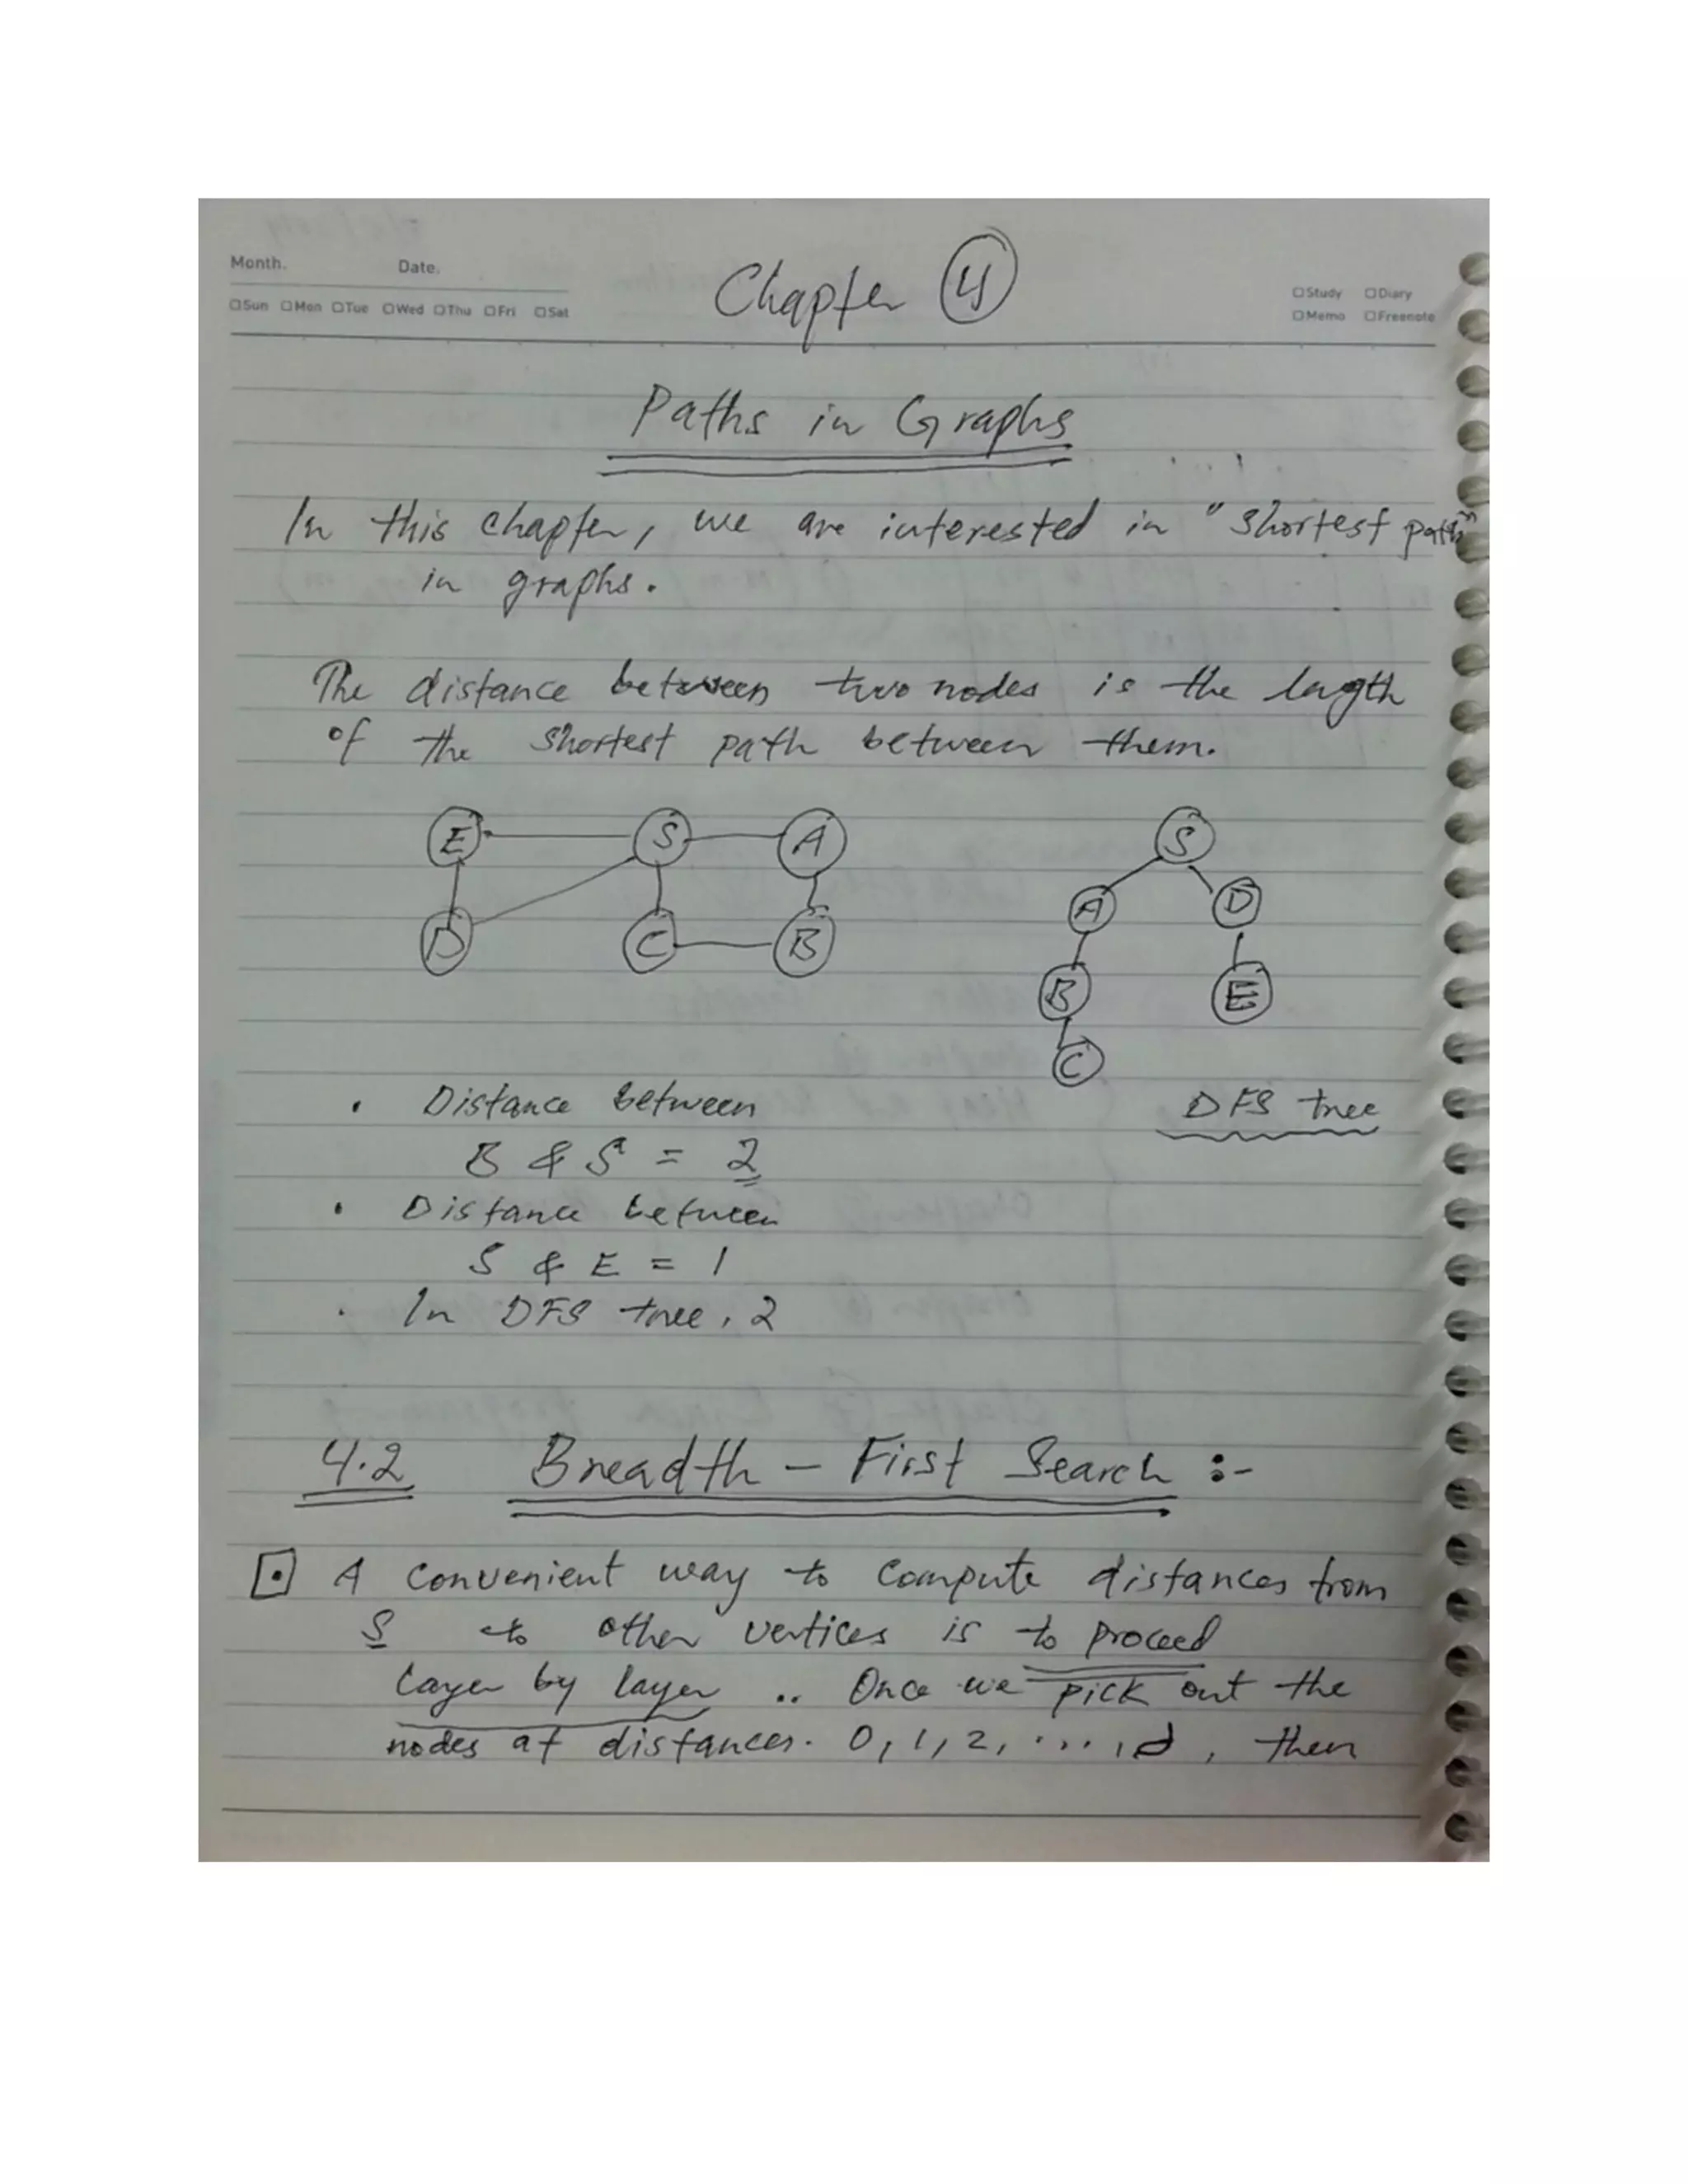 Month. Date.
Chapter 4
□Sun □Mon □Tue □Wed □Thu □Fri □Sat
□Study □Diary
□Memo □Freenote
Paths in Graphs
In this chapter, we are interested in "shortest path"
in graphs.
The distance between two nodes is the length
of the shortest path between them.
E S A
D C B
S
A D
B E
C
DFS tree
• Distance between
B & S = 2
• Distance between
S & E = 1
• In DFS tree, 2
4.2 Breadth - First Search :-
A convenient way to compute distances from
S to other vertices is to proceed
layer by layer .. Once we pick out the
nodes at distances. 0, 1, 2, ...., d, then